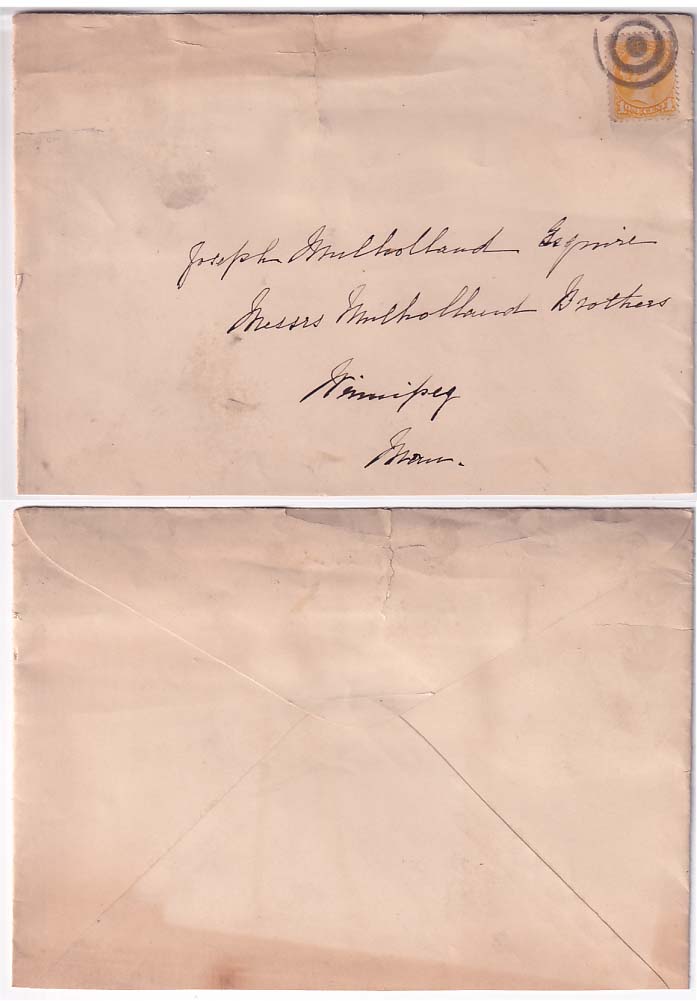 Joseph Mulholland Esquire
Messrs Mulholland Brothers
Winnipeg
Man.